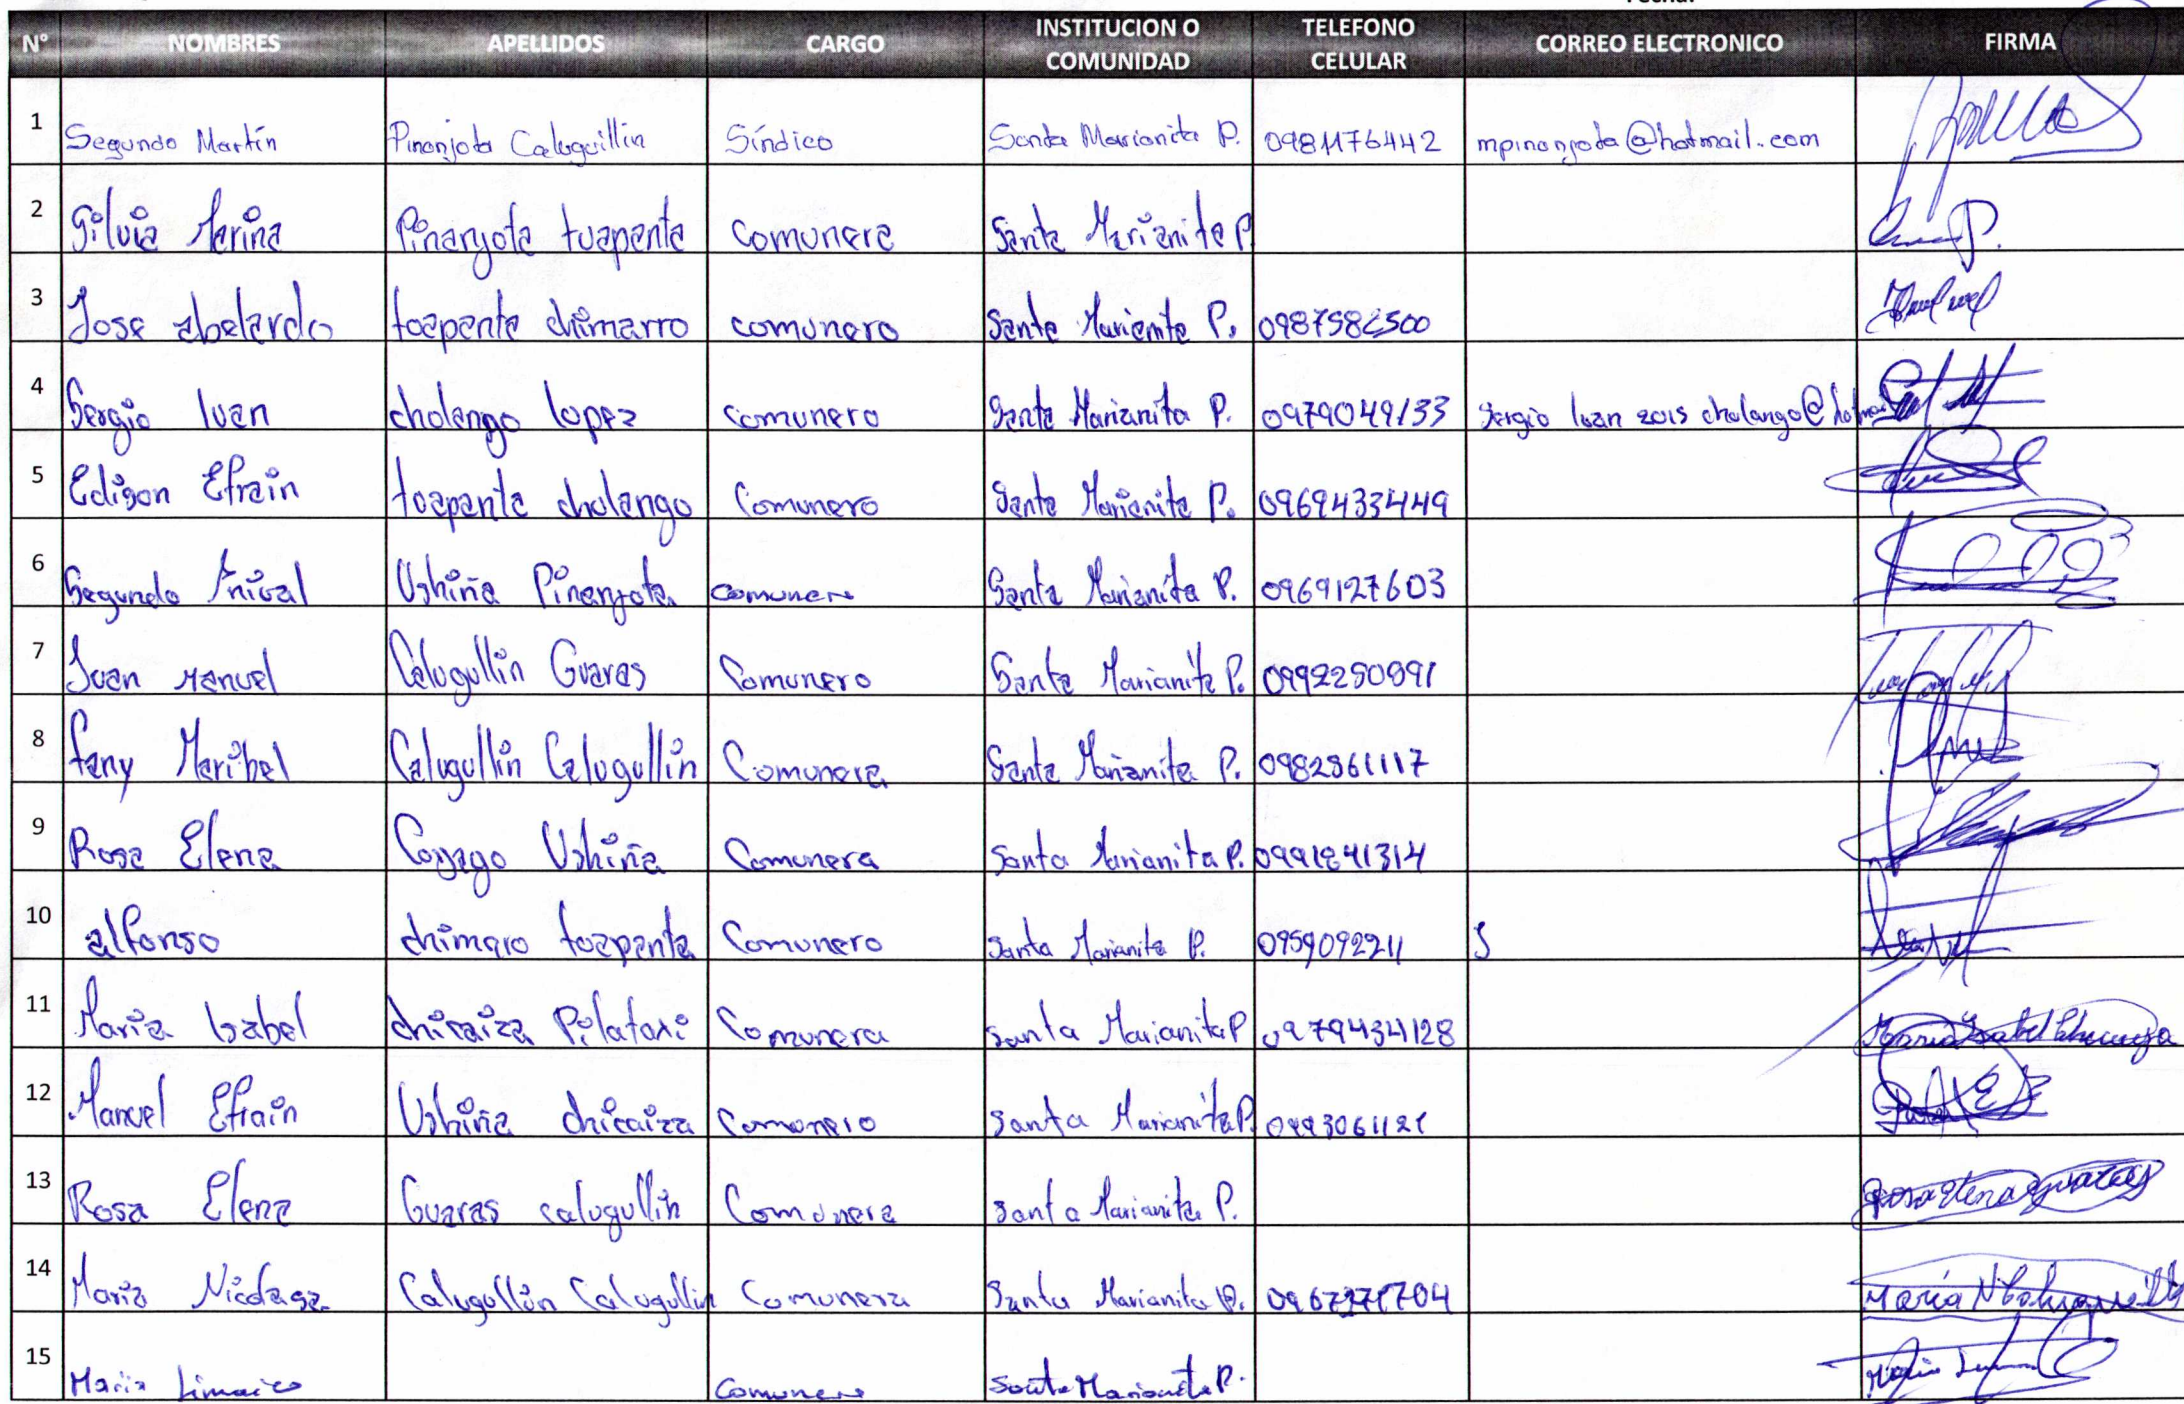 N° NOMBRES APELLIDOS CARGO INSTITUCION O COMUNIDAD TELEFONO CELULAR CORREO ELECTRONICO FIRMA
1 Segundo Martín Pinanjota Caluguillin Síndico Santa Marianita P. 0981176442 mpinanjota@hotmail.com
2 Silvia Marina Pinanjota tuapanta Comunera Santa Marianita P.
3 Jose abelardo toapanta chimarro comunero Santa Marianita P.
4 Sergio Ivan cholango lopez comunero Santa Marianita P. 0979049133
5 Edison Efrain toapanta cholango Comunero Santa Marianita P. 0969433449
6 Segundo Anival Ushiña Pinanjota comunero Santa Marianita P. 0969127603
7 Juan Manuel Calugullin Guaras Comunero Santa Marianita P.
8 fany Maribel Calugullin Calugullin Comunera Santa Marianita P.
9 Rosa Elena Ushiña Comunera Santa Marianita P.
10 alfonso chimaro toapanta Comunero Santa Marianita P. 0959092211
11 Maria Isabel chicaiza Pilataxi Comunera Santa Marianita P 0979434128
12 Manuel Efrain Ushiña chicaiza Comunero Santa Marianita P.
13 Rosa Elena Guaras calugullin Comunera Santa Marianita P.
14 Maria Nicolasa Calugullin Calugullin Comunera Santa Marianita P.
15 Maria Limaico Comunera Santa Marianita P.